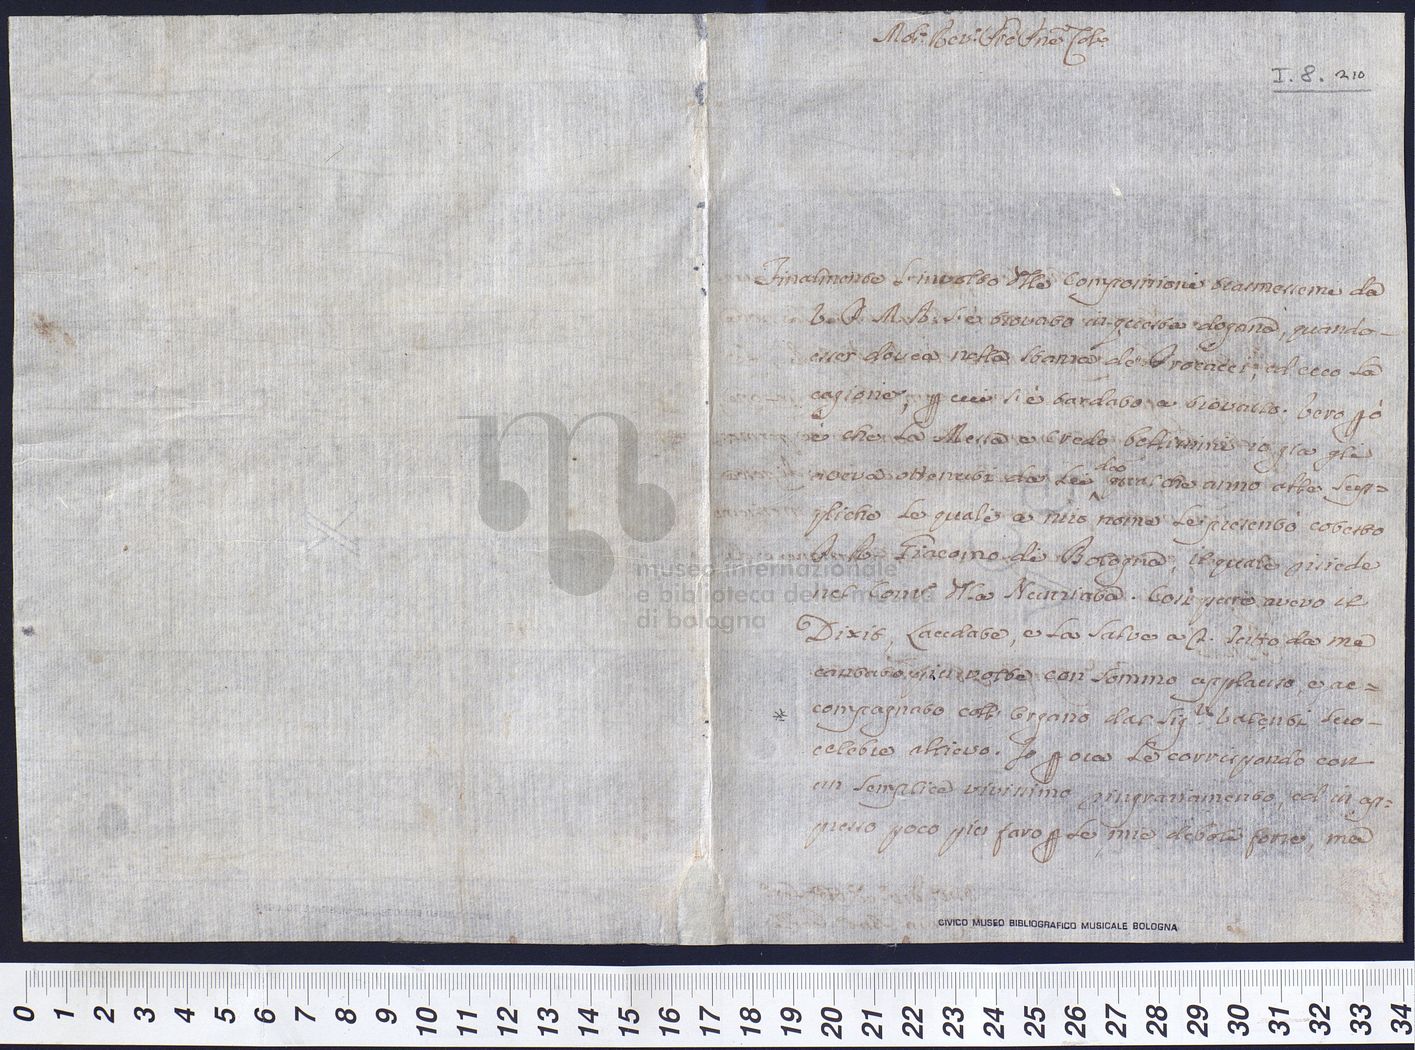 Mol. Rev. Pre Pne Col.
I. 8. 210
Finalmente l'involto dlle Composizioni trasmesseme da
V. P. M. R. s'è trovato in questa dogana, quando
esser dovea nella stanza de Procacci, ed ecco la
cagione, p cui si è tardato a trovarlo. Vero pò
è che la Messa e Credo bellissimi io già gli
aveva ottenuti da Lei do qualche anno alle sup=
pliche le quali a mio nome le presentò cotesto
P. R. Giacomo di Bologna, il quale risiede
nel Conv. dlla Nunziata. Così pure avevo il
Dixit, Laudate, e la Salve a 2. tutto da me
cantato più volte con sommo applauso, e ac=
compagnato coll' Organo dal Sigr Valenti suo
celebre allievo. Io p ora Le corrispondo con
un semplice vivissimo ringraziamento, ed in ap=
presso poco più farò p le mie debole forze, ma
*
museo internazionale
e biblioteca della musica
di bologna
CIVICO MUSEO BIBLIOGRAFICO MUSICALE BOLOGNA
0 1 2 3 4 5 6 7 8 9 10 11 12 13 14 15 16 17 18 19 20 21 22 23 24 25 26 27 28 29 30 31 32 33 34